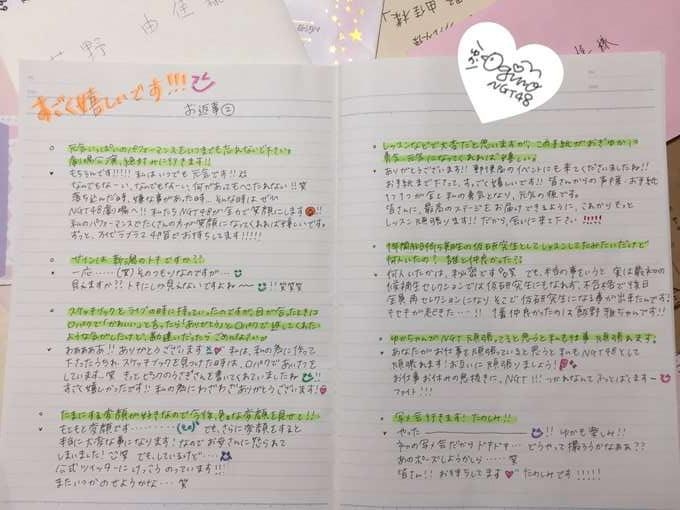 野 由佳様
すごく嬉しいです!!!
お返事②
Ogino
NGT48
元気いっぱいのパフォーマンスをいつまでも忘れないで下さい。
劇場公演、絶対みに行きます!!
もちろんです!!!! 私はいつでも元気です!!
なんでもなーい、なんでもなーい、何があってもへこたれない!! 笑
落ち込んだ時、嫌な事があった時、そんな時は ぜひ
NGT48劇場へ!! 私たちNGT48が全力で笑顔にします!!
私のパフォーマンスでたくさんの方が笑顔になってくれれば嬉しいです。
ずっと、ラブラブラブ 48番でお待ちしてます!!!!
サインは 新潟のトキですか??
一応……(笑)そのつもりなのですが…
見えますか?? トキにしか見えないですよねー
!! 笑笑笑
スケッチブックをライブの時に持っていったのですが、目が合ったときに
口パクで「かわいい」と言ったら「ありがとう」と口パクで返してくれた
ような気がしたけど、勘違いだったらごめんなさい。
わああああ!! ありがとうございます 私は、私の為に作って
下さったうちわ、スケッチブックを見つけた時は、口パクであいさつを
しています。笑 きっと ピンクのうさぎさんを書いてくれていましたね !!
すごく嬉しかったです!! 私の為にわざわざありがとうございます!
たまにする変顔が好きなので今後、色々な変顔を見せて!!
もともと変顔です……… でも、さらに変顔をすると
本当に大変な事になります! なので お母さんに怒られて
しまいました 笑 でもしているけど…
公式ツイッターにけっこうのっています!!
またいつかのせようかな…. 笑
レッスンなどで大変だと思いますが、この手紙がおぎゆかの
勇気、元気になってくれれば嬉しい。
ありがとうございます!! 野球場のイベントにも来てくださいましたね!!
お手紙まで下さって、すっごく嬉しいです!! 皆さんからの声援・お手紙
1つ1つが全て私の勇気となり、元気の源です。
皆さんに、最高のステージをお届けできるように、これからもっと
レッスン頑張ります!! だから、会いに来て下さい !!!!!
何人いたの?? 誰と仲良かった??
何人いたかは、秘密です 笑 でも、本当の事をいうと 実は最初の
候補生セレクションでは仮研究生にもなれず、不合格で後日
全員再セレクションになり、そこで仮研究生になる事が出来たんです!
キセキが起きた…!! 1番仲良かったのは 荻野 雅ちゃんです!!
ゆかちゃんがNGT頑張ってると思うと私も仕事頑張れます。
あなたがお仕事を頑張っていると思うと私もNGT48として
頑張れます! お互いに頑張りましょう!
お仕事お休みの息抜きに、NGT!!! つかれなんてふっとばしますー
ファイト!!!
写メ会行きます! たのしみ!!
やった !! ゆかも楽しみ!!
初の写メ会だから ドキドキ… どうやって撮ろうかなああ??
あのポーズしようかしら…… 笑
皆さん!! お待ちしてます たのしみです!!!!